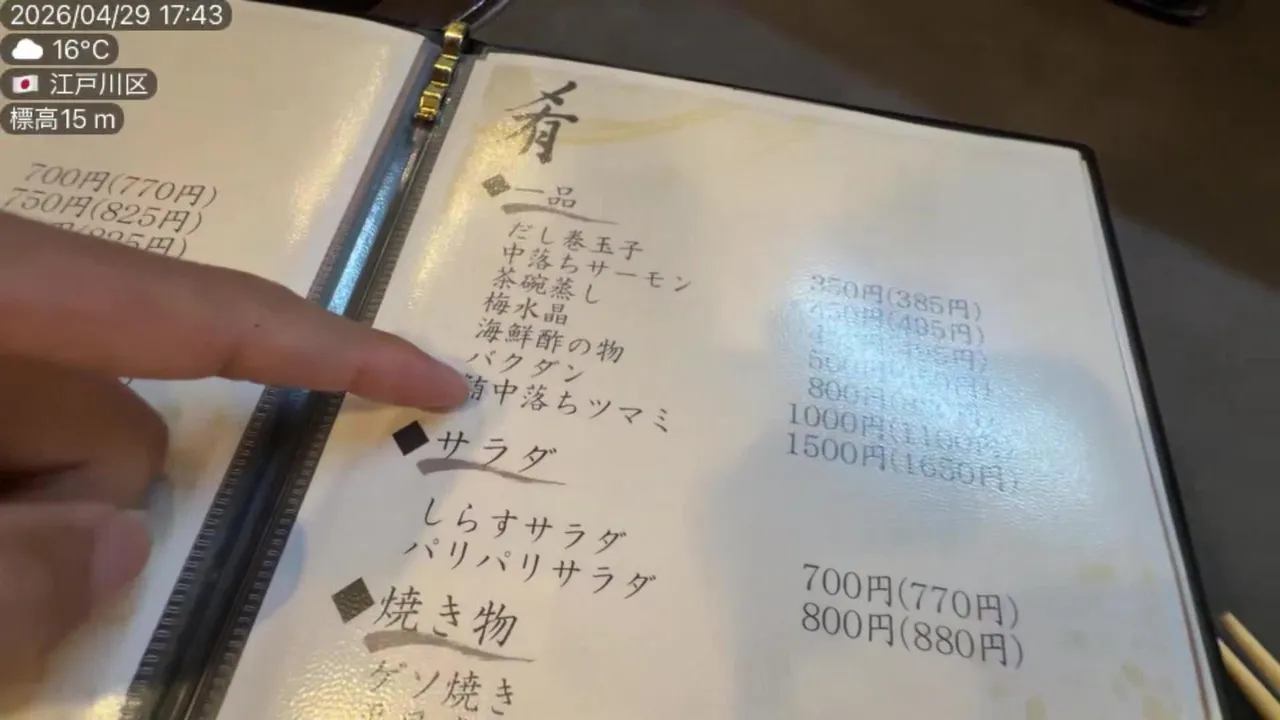 2026/04/29 17:43
16°C
江戸川区
標高15 m
700円(770円)
750円(825円)
肴
一品
だし巻玉子
中落ちサーモン
茶碗蒸し
梅水晶
海鮮酢の物
バクダン
中落ちツマミ
350円(385円)
450円(495円)
800円
1000円(1100円)
1500円(1650円)
サラダ
しらすサラダ
パリパリサラダ
700円(770円)
800円(880円)
焼き物
ゲソ焼き